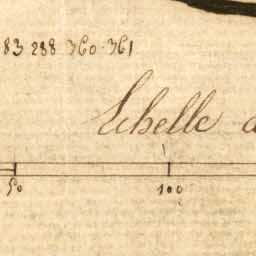 83 288 360-361
Echelle d
50 100